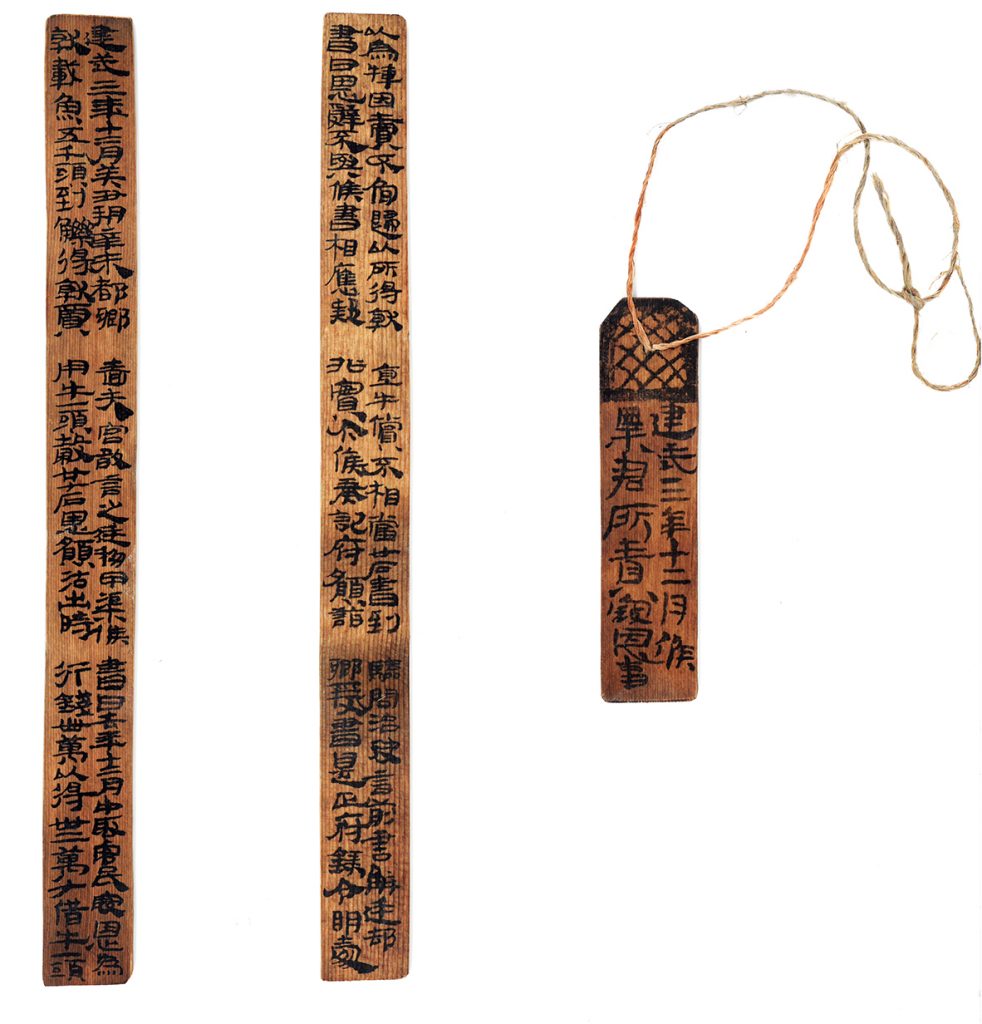 建武三年十二月癸丑朔辛未都鄉嗇夫宮敢言之廷移甲渠候書曰去年十二月中取客民寇恩為
就載魚五千頭到觻得就賈用牛一頭穀廿七石恩願沽出時行錢卌萬以得卅二萬又借牛一頭
以為因賣不肯歸以所得就直牛償不相當廿石書到驗問治決言前言解廷郵
書曰恩辭不與候書相應疑非實今候奏記府願詣鄉爰書是正府錄令明處
建武三年十二月候
粟君所責寇恩事